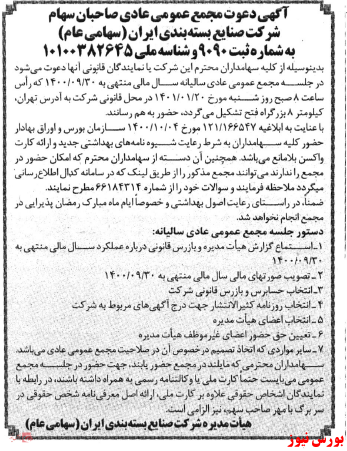 آگهی دعوت مجمع عمومی عادی صاحبان سهام
شرکت صنایع بسته‌بندی ایران (سهامی عام)
به شماره ثبت ۹۰۹۰ و شناسه ملی ۱۰۱۰۰۳۸۲۶۴۵
بدینوسیله از کلیه سهامداران محترم این شرکت یا نمایندگان قانونی آنها دعوت می‌شود
در جلسه مجمع عمومی عادی سالیانه سال مالی منتهی به ۱۴۰۰/۰۹/۳۰ که رأس
ساعت ۸ صبح روز شنبه مورخ ۱۴۰۱/۰۱/۲۰ در محل قانونی شرکت به آدرس تهران،
کیلومتر ۸ بزرگراه فتح تشکیل می‌گردد، حضور به هم رسانند.
با عنایت به ابلاغیه ۱۲۱/۱۶۶۵۴۷ مورخ ۱۴۰۰/۱۰/۰۴ سازمان بورس و اوراق بهادار
حضور کلیه سهامداران به شرط رعایت شیوه نامه‌های بهداشتی جدید و ارائه کارت
واکسن بلامانع می‌باشد. همچنین آن دسته از سهامداران محترم که امکان حضور در
مجمع را ندارند می‌توانند مجمع مذکور را از طریق لینک که در سامانه کدال اطلاع‌رسانی
میگردد ملاحظه فرمایند و سوالات خود را از شماره ۶۶۱۸۴۳۱۴ مطرح نمایند.
ضمناً، در راستای رعایت اصول بهداشتی و خصوصاً ایام ماه مبارک رمضان پذیرایی در
مجمع انجام نخواهد شد.
دستور جلسه مجمع عمومی عادی سالیانه:
۱-استماع گزارش هیأت مدیره و بازرس قانونی درباره عملکرد سال مالی منتهی به
۱۴۰۰/۰۹/۳۰
۲-تصویب صورتهای مالی سال مالی منتهی به ۱۴۰۰/۰۹/۳۰
۳-انتخاب حسابرس و بازرس قانونی شرکت
۴-انتخاب روزنامه کثیرالانتشار جهت درج آگهی‌های مربوط به شرکت
۵-انتخاب اعضای هیأت مدیره
۶-تعیین حق حضور اعضای غیرموظف هیأت مدیره
۷-سایر مواردی که اتخاذ تصمیم در خصوص آن در صلاحیت مجمع عمومی عادی می‌باشد.
سهامداران محترمی که مایلند در مجمع حضور یابند، جهت حضور در جلسه مجمع
عمومی می‌بایست حتماً کارت ملی یا وکالتنامه رسمی به همراه داشته باشند، در رابطه با
نمایندگان اشخاص حقوقی علاوه بر کارت ملی، ارائه اصل معرفی‌نامه شخص حقوقی در
سربرگ با مهر صاحب سهم، نیز الزامی است.
هیأت مدیره شرکت صنایع بسته‌بندی ایران (سهامی عام)
بورس نیوز